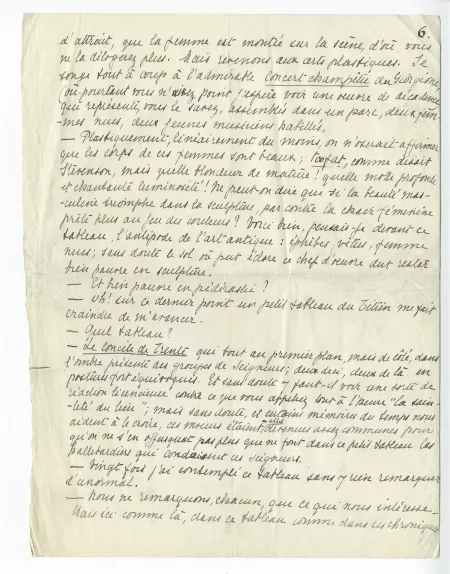 6.
d'attrait, que la femme est montée sur la scène, d'où vous
ne la délogerez plus. Mais revenons aux arts plastiques. Je
songe tout à coup à l'admirable Concert champêtre du Giorgione
(où pourtant vous n'osez point j'espère voir une œuvre de décadence)
qui représente, vous le savez, assemblés dans un parc, deux fem-
mes nues, deux jeunes musiciens habillés.
— Plastiquement, linéairement du moins, on n'oserait affirmer
que les corps de ces femmes sont beaux; too fat, comme disait
Stevenson, mais quelle blondeur de matière! quelle molle, profonde
et chantante luminosité! Ne peut-on dire que si la beauté mas-
culine triomphe dans la sculpture, par contre la chair féminine
prête plus au jeu des couleurs? Voici bien, pensais-je devant ce
tableau, l'antipode de l'art antique: éphèbes vêtus, femmes
nues; sans doute le sol où put éclore ce chef d'œuvre dut rester
bien pauvre en sculpture.
— Et bien pauvre en pédérastie!
— Oh! sur ce dernier point un petit tableau du Titien me fait
craindre de m'avancer.
— Quel tableau?
— Le Concile de Trente qui tout au premier plan, mais de côté, dans
l'ombre présente des groupes de Seigneurs; deux deci, deux de là en
postures fort équivoques. Et sans doute y faut-il voir une sorte de
réaction licencieuse contre ce que vous appeliez tout à l'heure "la sain-
teté du lieu"; mais sans doute, et certains mémoires du temps nous
aident à le croire, ces mœurs étaient devenues assez communes pour
qu'on ne s'en offusquât pas plus que ne font dans ce petit tableau les
hallebardiers qui condoient ces Seigneurs.
— Vingt fois j'ai contemplé ce tableau sans y rien remarquer
d'anormal.
— Nous ne remarquons, chacun, que ce qui nous intéresse.
Mais ici comme là, dans ce tableau comme dans ces chroniques